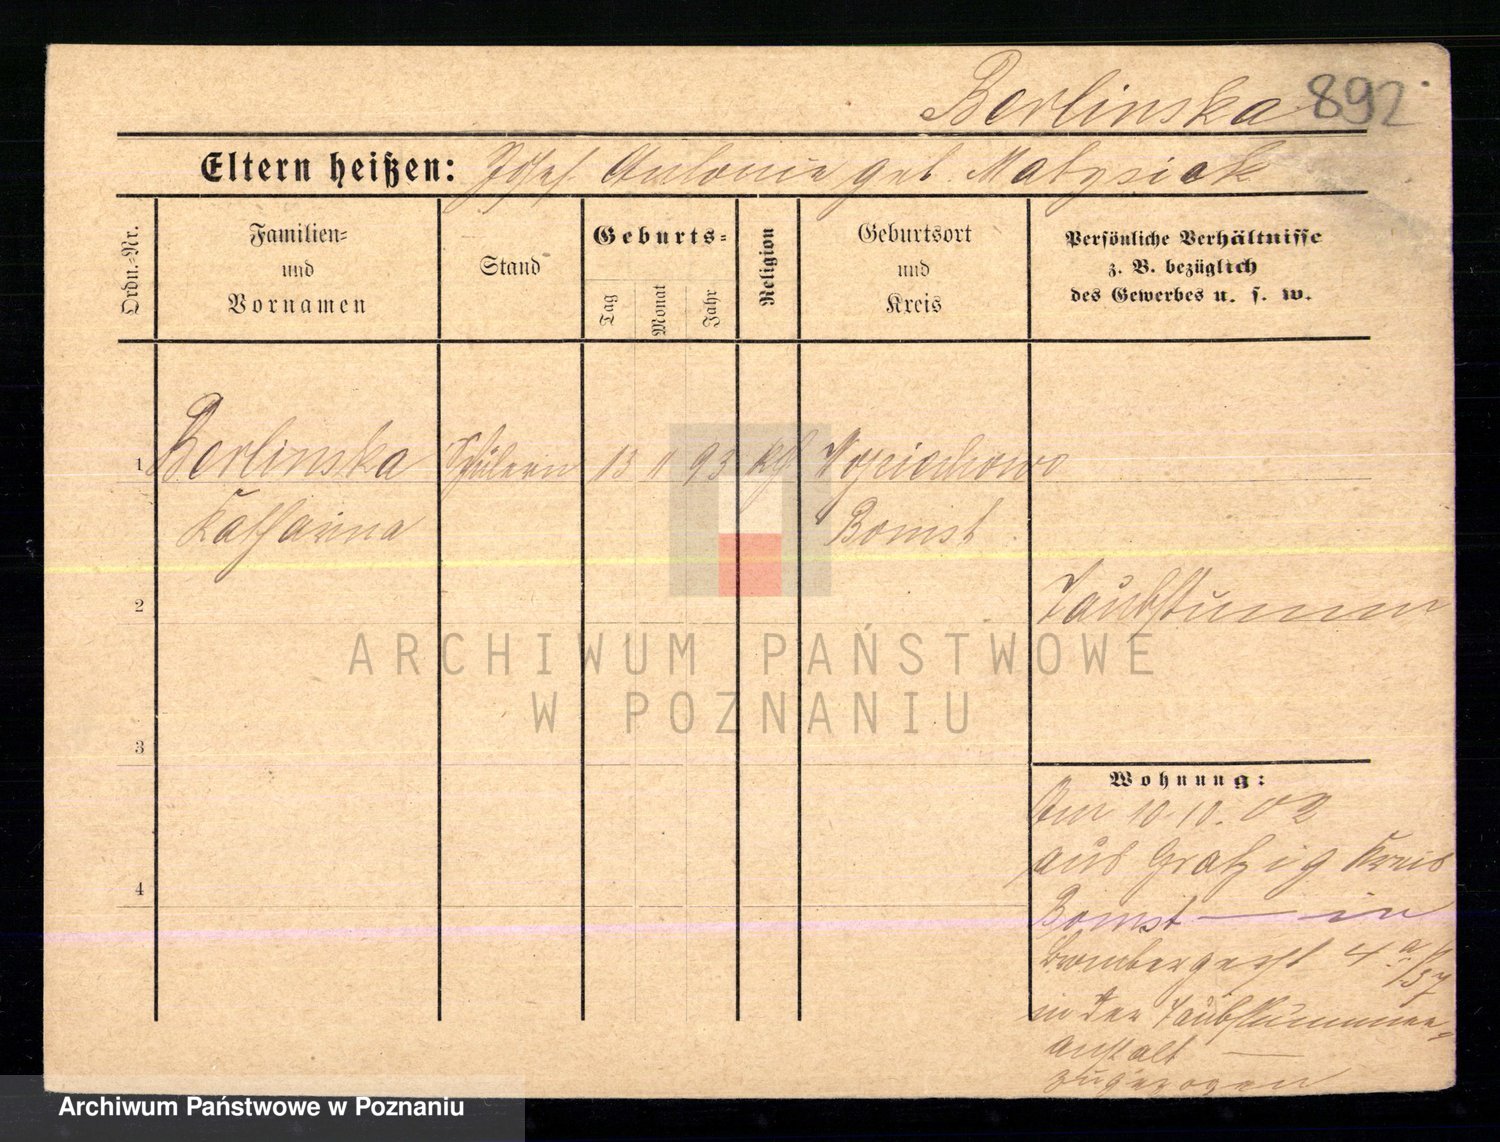 Berlinska 892
Eltern heißen: Josef Antonie geb. Matysiak
Ordn.-Nr.
Familien-
und
Vornamen
Stand
Geburts-
Tag
Monat
Jahr
Religion
Geburtsort
und
Kreis
Persönliche Verhältnisse
z. B. bezüglich
des Gewerbes u. s. w.
1 Berlinska Schülerin 13 11 93 kth Wojciechowo
Katharina Bomst
2 Taubstumm
ARCHIWUM PAŃSTWOWE
W POZNANIU
3
Wohnung:
Am 10.10.02
aus Gratzig Kreis
4
Bomst — in
Brombergerst 4a/57
in der Taubstummen-
anstalt —
zugezogen
Archiwum Państwowe w Poznaniu